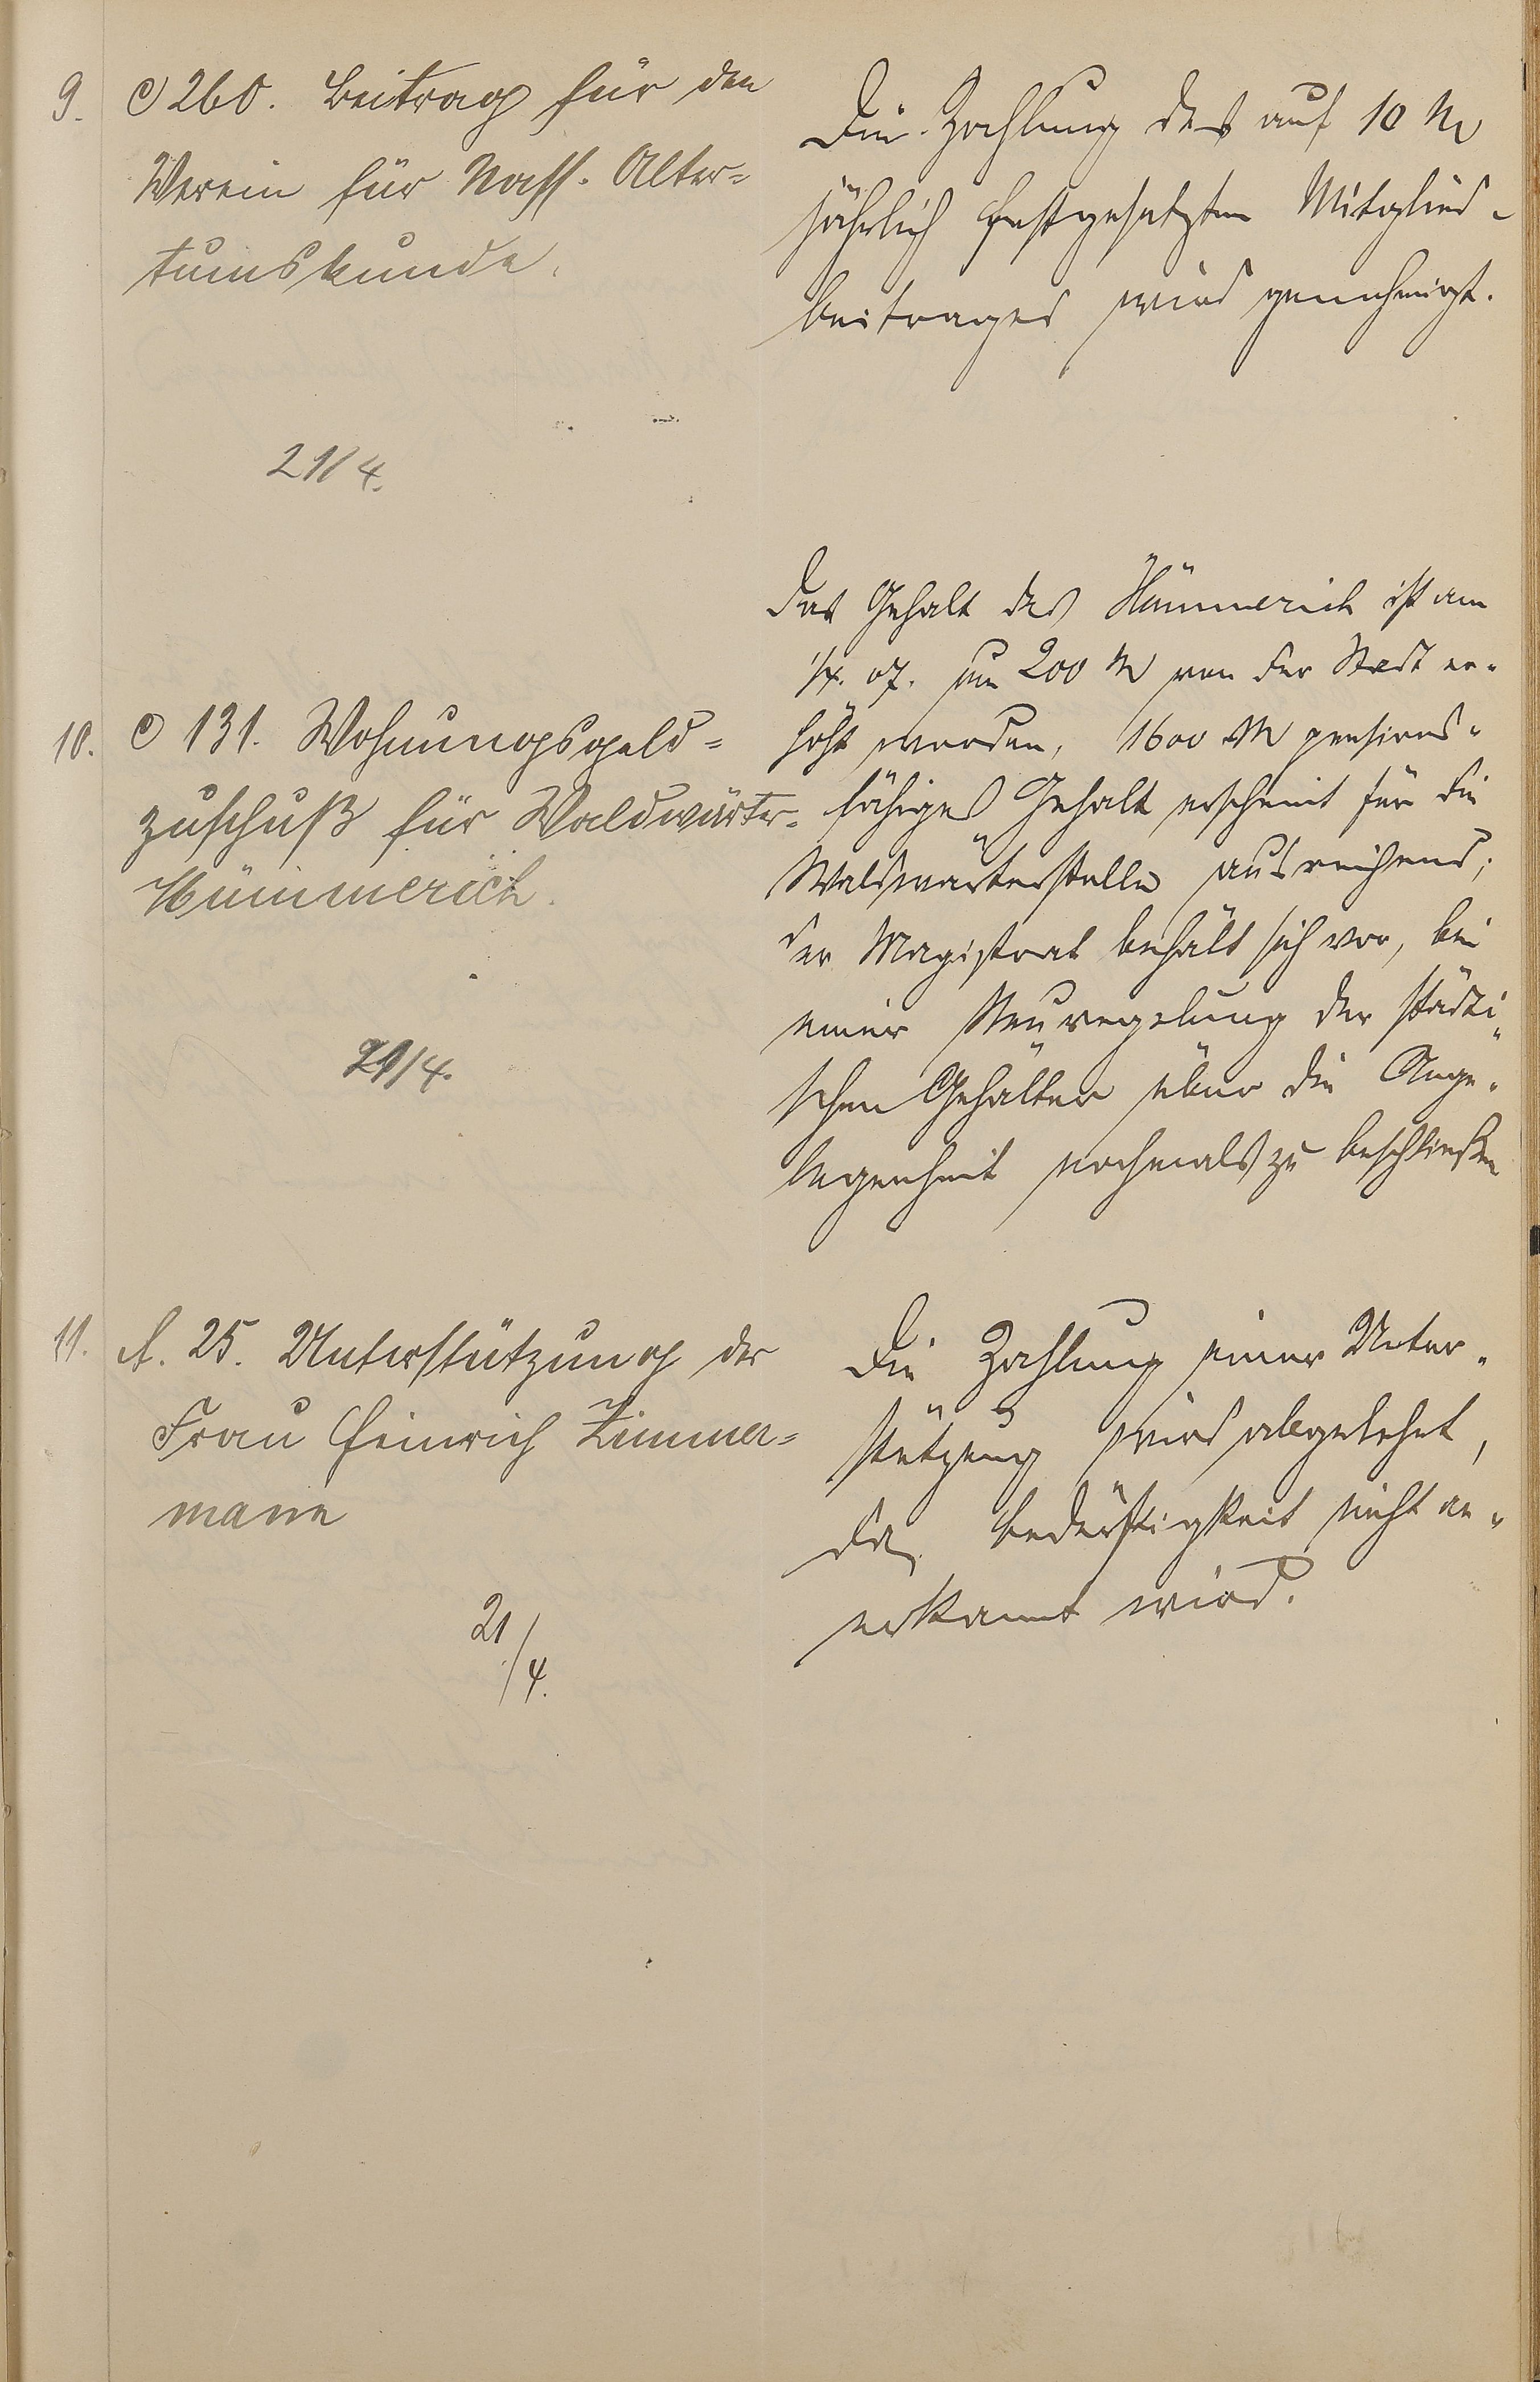 9. C 260. Beitrag für den
Verein für Nass. Alter=
tumskunde.
Die Zahlung des auf 10 M
jährlich festgesetzten Mitglied-
beitrages wird genehmigt.
21/4.
10. C 131. Wohnungsgeld=
zuschuß für Waldwärter
Hümmerich.
Das Gehalt des Hümmerich ist am
1/4. 07. um 200 M von der Stadt er-
höht worden, 1600 M pensions-
fähiges Gehalt erscheint für die
Waldwärterstelle ausreichend;
der Magistrat behält sich vor, bei
einer Neuregelung der städti-
schen Gehälter über die Ange-
legenheit nochmals zu beschließen
21/4.
11. A. 25. Unterstützung der
Frau Heinrich Zimmer=
mann
Die Zahlung einer Unter-
stützung wird abgelehnt,
da Bedürftigkeit nicht an-
erkannt wird.
21/4.